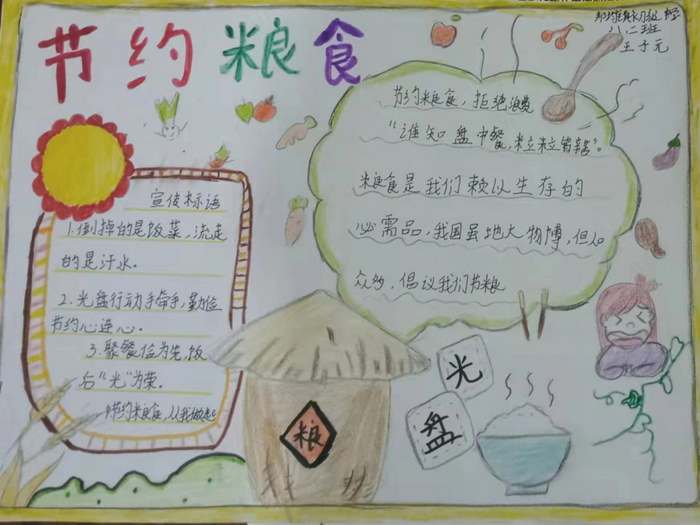 节约粮食
八.二班
王子元
节约粮食,拒绝浪费
“谁知盘中餐,粒粒皆辛苦”。
粮食是我们赖以生存的
必需品,我国虽地大物博,但人口
众多,倡议我们节粮
宣传标语
1.倒掉的是饭菜,流走
的是汗水。
2.光盘行动手牵手,勤俭
节约心连心。
3.聚餐俭为先,饭
后“光”为荣。
节约粮食,从我做起
粮
光
盘